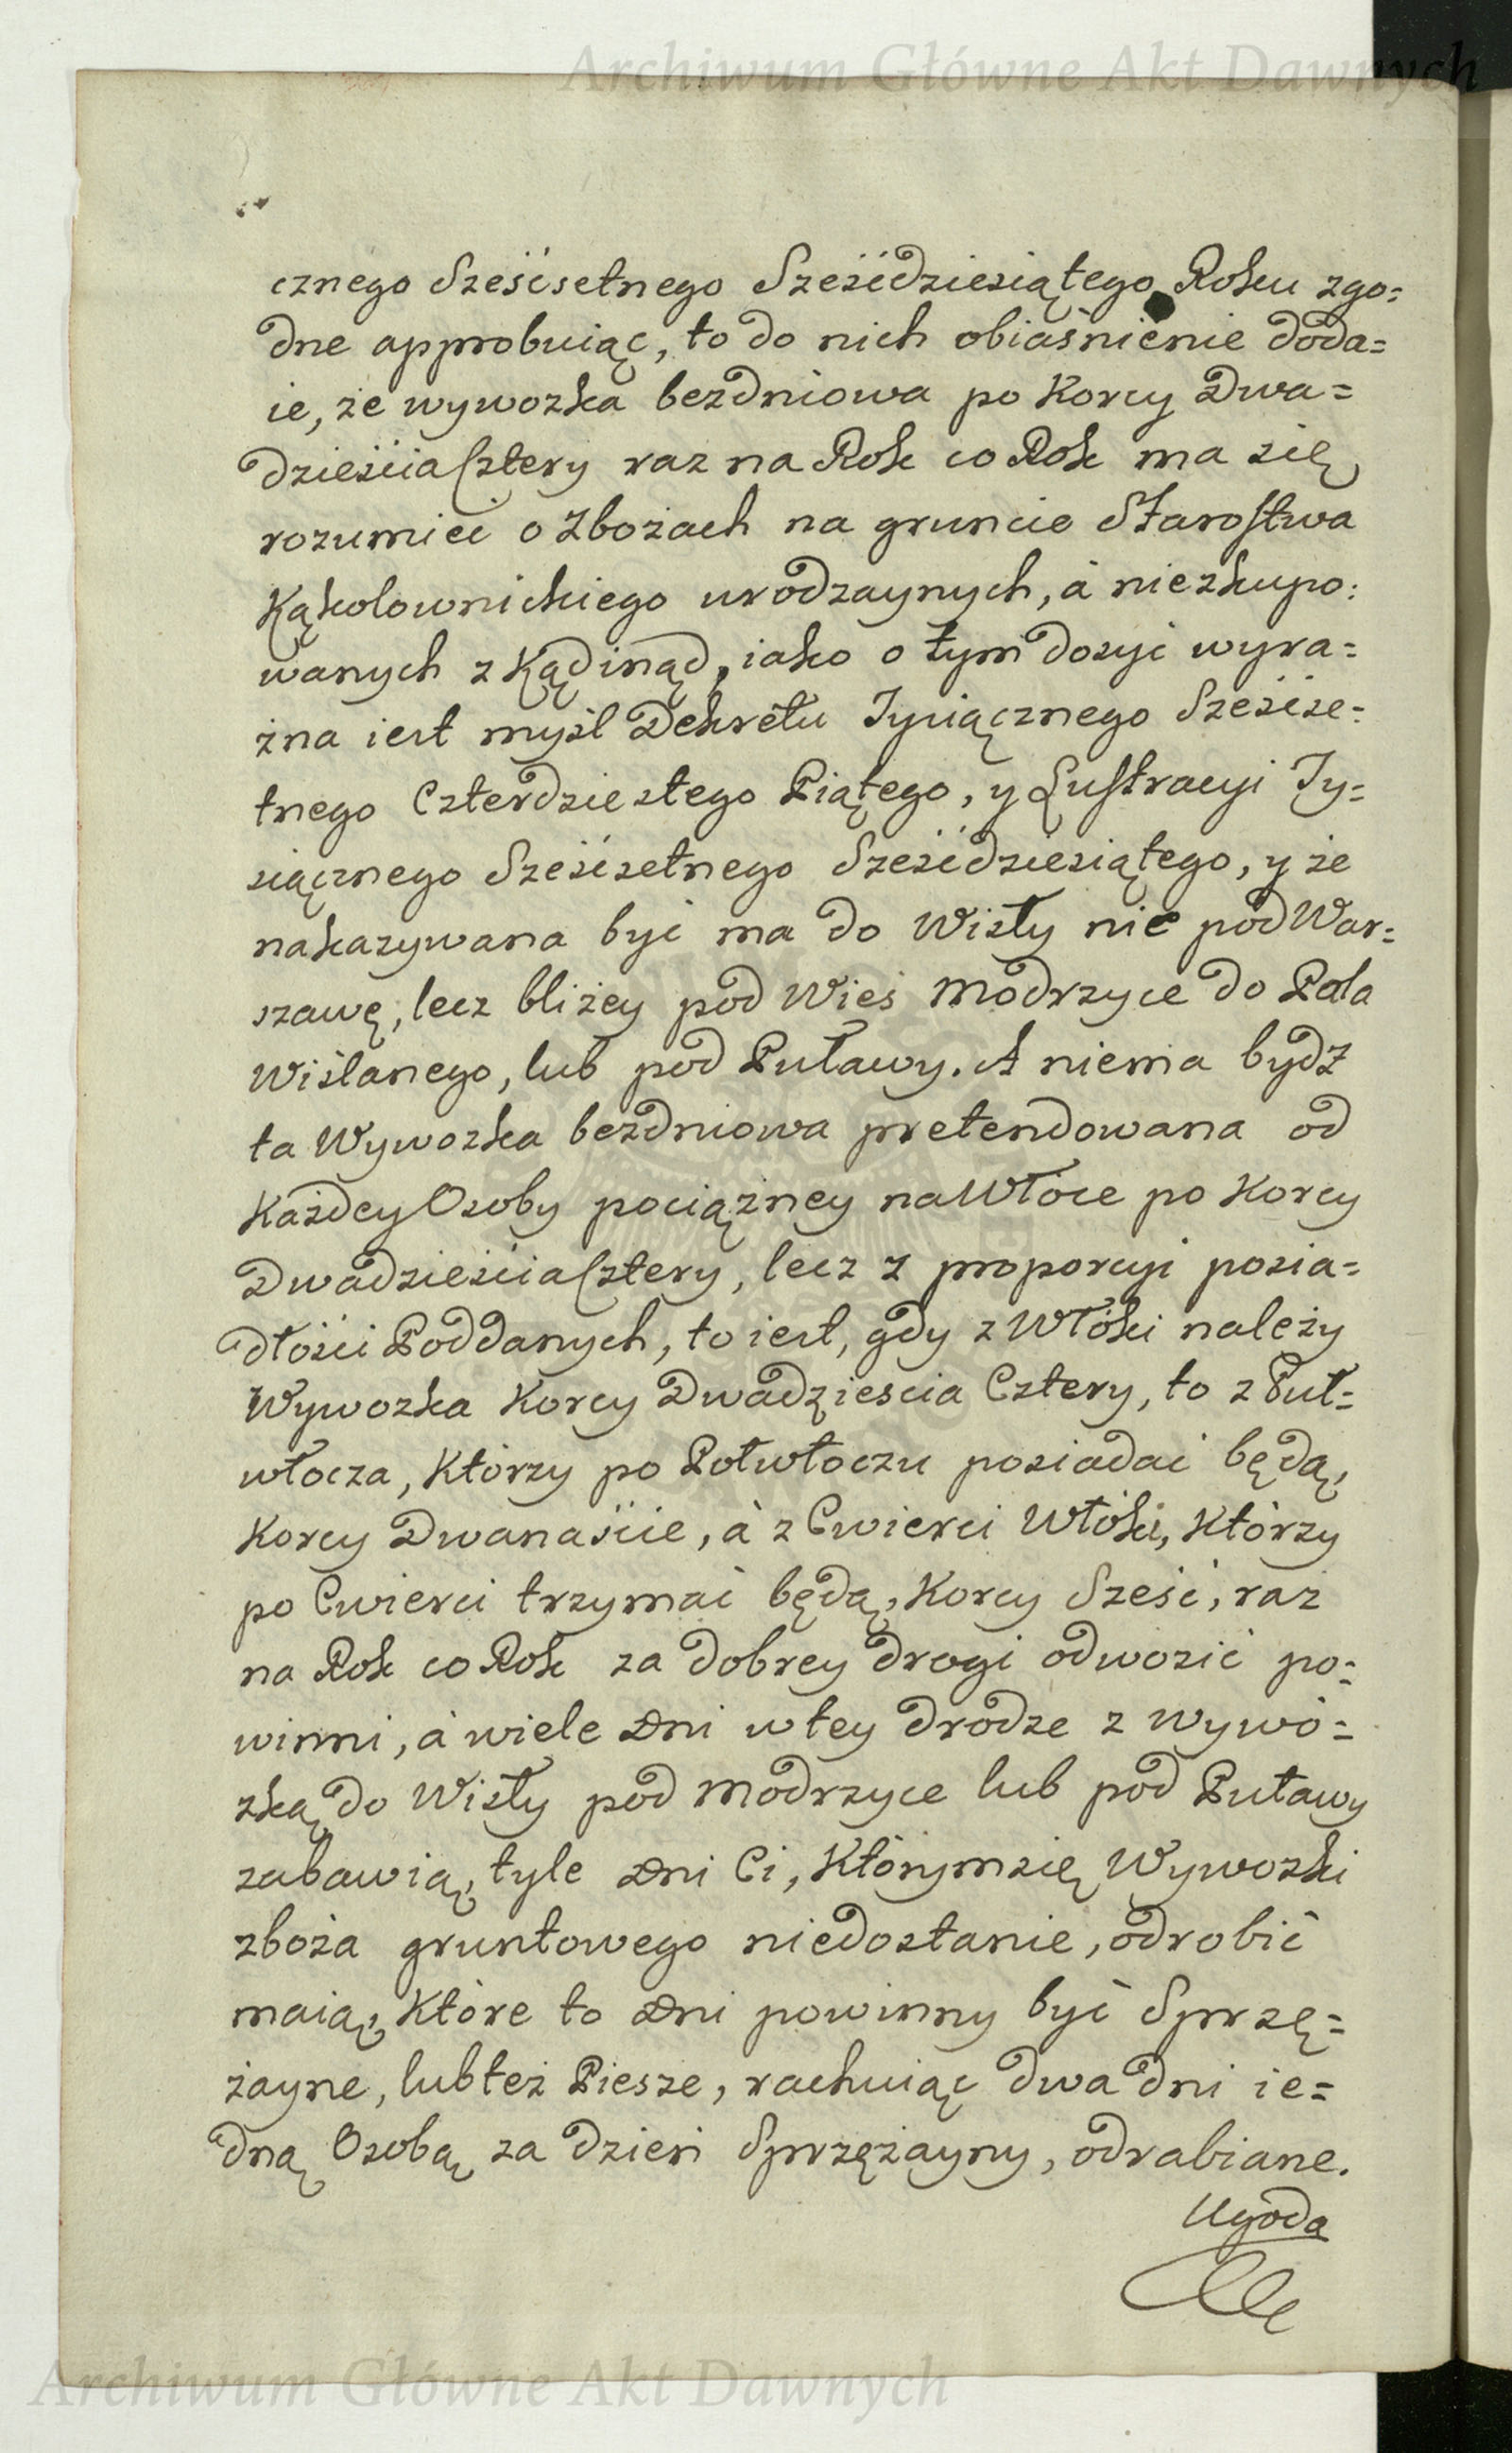 Archiwum Główne Akt Dawnych
cznego Sześćsetnego Sześćdziesiątego Roku zgo=
dne approbuiąc, to do nich obiaśnienie doda=
ie, że wywozka bezdniowa po Korcy Dwa=
dzieścia Cztery raz na Rok co Rok ma się
rozumieć o Zbożach na gruncie Starostwa
Kąkolownickiego urodzaynych, á niezkupo:
wanych z Kądinąd, iako o tym dosyć wyra=
żna iest myśl Dekretu Tysiącznego Sześćse=
tnego Czterdziestego Piątego, y Lustracyi Ty=
siącznego Sześćsetnego Sześćdziesiątego, y że
nakazywana być ma do Wisły nie pod War=
szawę, lecz bliżey pod Wieś Modrzyce do Pala
Wiślanego, lub pod Puławy. A niema bydź
ta Wywozka bezdniowa pretendowana od
Każdey Osoby pociążney na Włóce po Korcy
Dwadzieścia Cztery, lecz z proporcyi posia=
dłości Poddanych, to iest, gdy z Włóki należy
Wywozka Korcy Dwadzieścia Cztery, to z Puł=
włocza, Którzy po Połwłoczu posiadać będą,
Korcy Dwanaście, á z Cwierci Włóki, Którzy
po Cwierci trzymać będą, Korcy Sześć, raz
na Rok co Rok za dobrey drogi odwozić po=
winni, á wiele Dni w tey drodze z Wywó=
zką do Wisły pod Modrzyce lub pod Puławy
zabawią, tyle Dni Ci, Którym się Wywozki
zboża gruntowego niedostanie, odrobić
maią, Które to Dni powinny być Sprzę=
żayne, lub też Piesze, rachuiąc dwa dni ie=
dną Osobą za dzień Sprzężayny, odrabiane.
Ugoda
Archiwum Główne Akt Dawnych